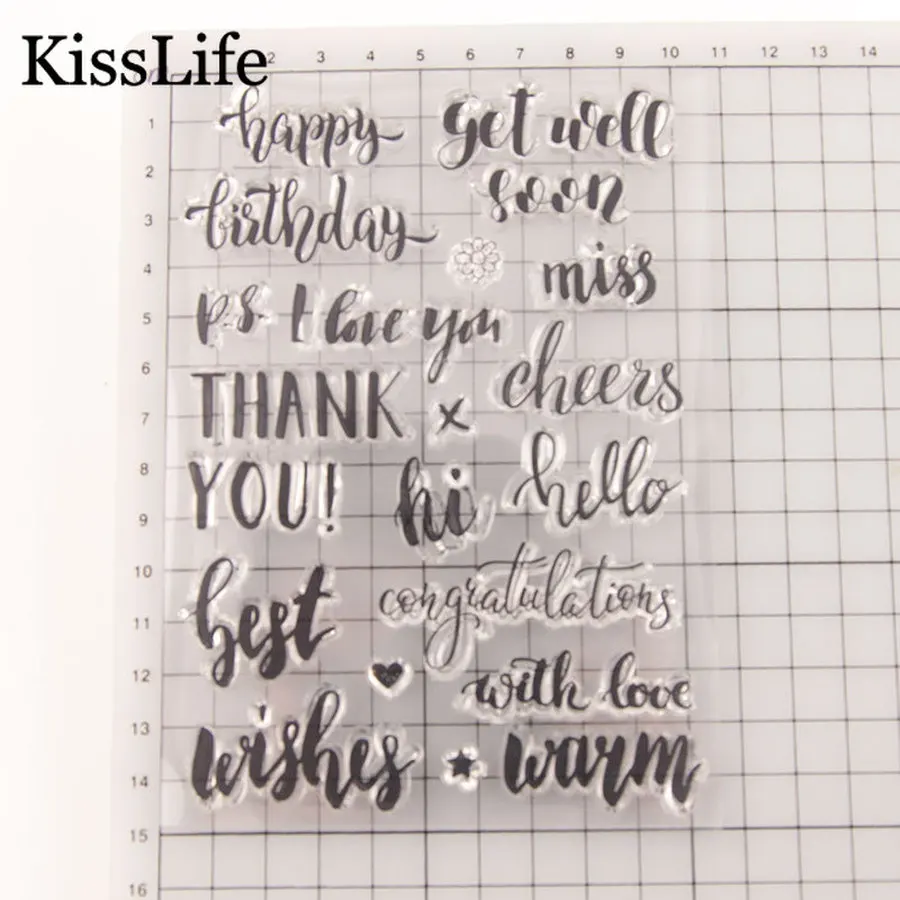 KissLife
2 3 4 5 6 7 8 9 10 11 12 13 14
1
2
3
4
5
6
7
8
9
10
11
12
13
14
15
16
happy
birthday
get well
soon
miss
p.s. I love you
THANK
YOU!
x
cheers
hi
hello
best
wishes
congratulations
with love
warm